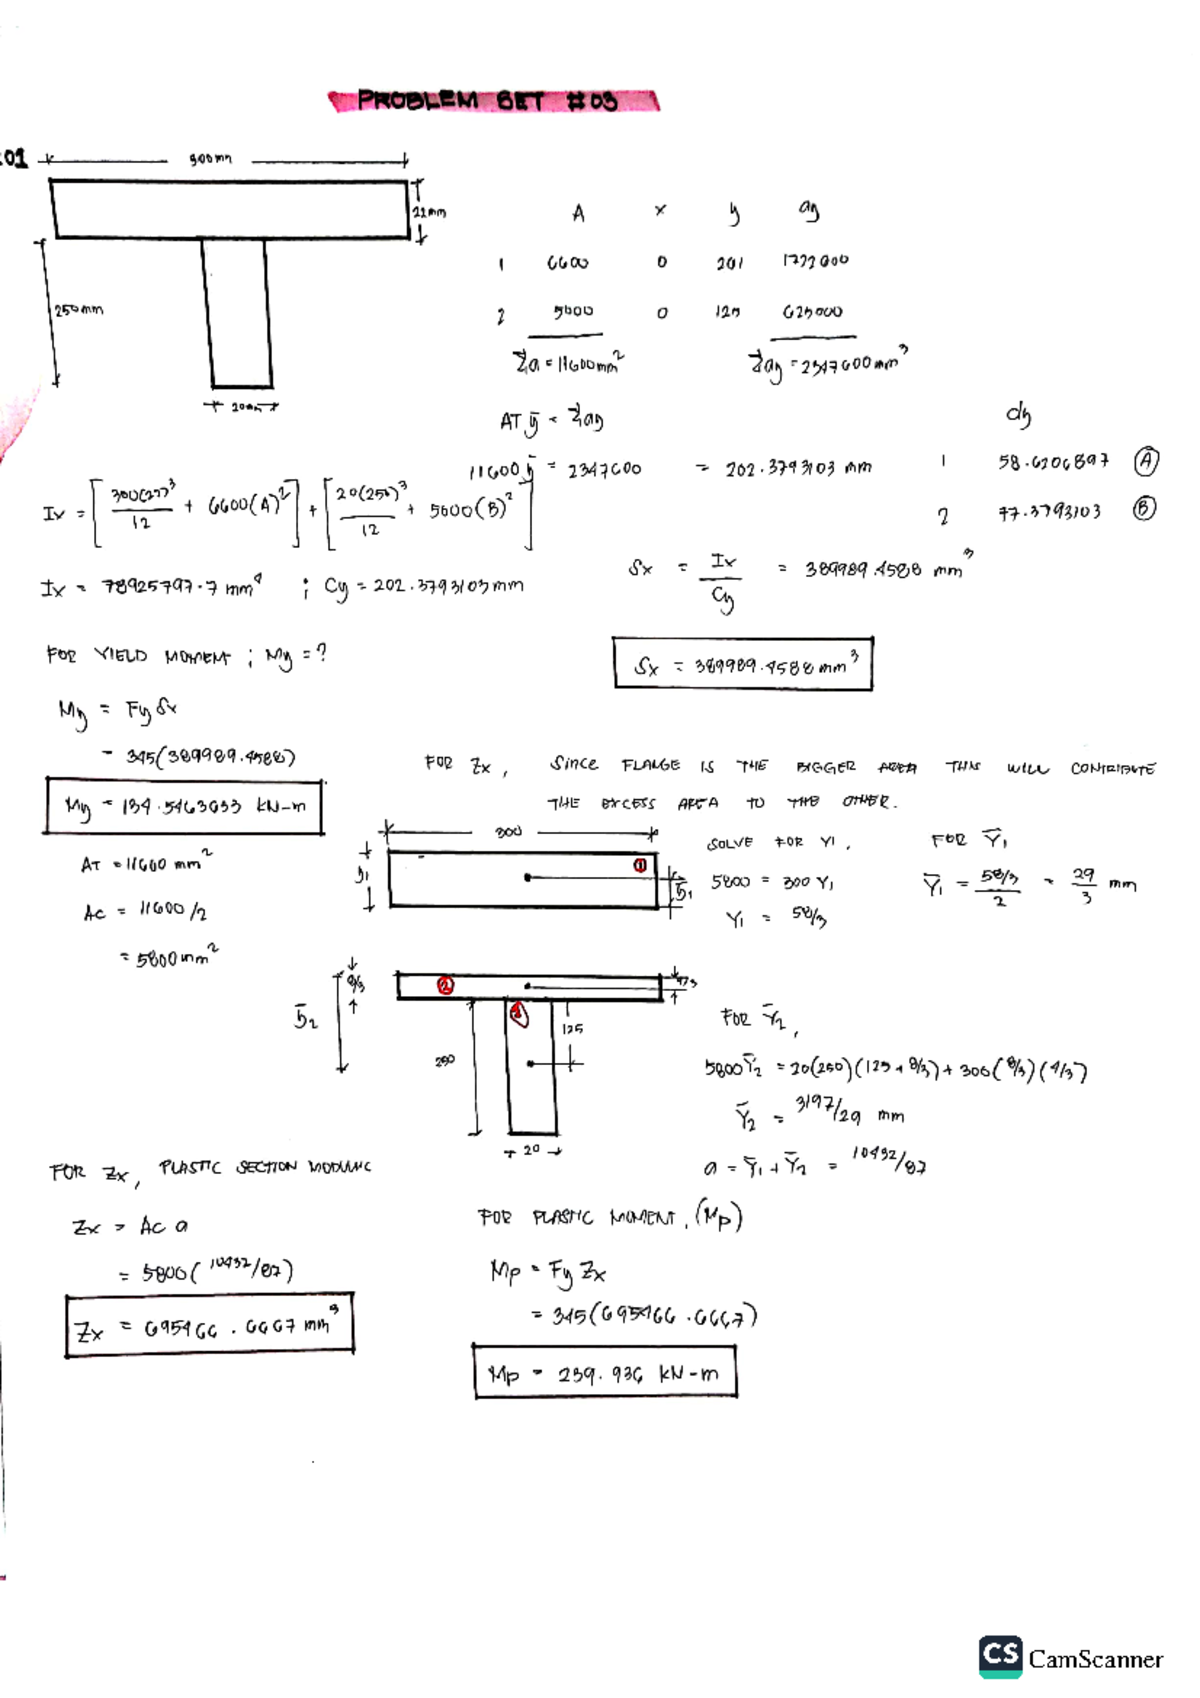 PROBLEM SET #03
:01
300mm
22mm
250mm
20mm
A x y ay
1 6600 0 261 1722600
2 5000 0 125 625000
Σa = 11600mm² Σay = 2347600mm³
AT ȳ = Σay
11600ȳ = 2347600 = 202.3793103 mm
dy
1 58.6206897 Ⓐ
2 77.3793103 Ⓑ
Ix = [300(22)³/12 + 6600(A)²] + [20(250)³/12 + 5000(B)²]
Ix = 78925797.7 mm⁴ ; Cy = 202.3793103mm
Sx = Ix/Cy = 389989.4588 mm³
Sx = 389989.4588 mm³
FOR YIELD MOMENT ; My = ?
My = Fy Sx
= 345(389989.4588)
My = 134.5463633 kN-m
FOR Zx, SINCE FLANGE IS THE BIGGER AREA THIS WILL CONTRIBUTE
THE EXCESS AREA TO THE OTHER.
AT = 11600 mm²
AC = 11600/2
= 5800mm²
300
y1
①
ȳ1
SOLVE FOR Y1,
5800 = 300 Y1
Y1 = 58/3
FOR Ȳ1
Ȳ1 = 58/3/2 = 29/3 mm
ȳ2
8/3
②
4/3
125
250
20
FOR Ȳ2,
5800Ȳ2 = 20(250)(125 + 8/3) + 300(8/3)(4/3)
Ȳ2 = 3197/29 mm
a = Ȳ1 + Ȳ2 = 10432/87
FOR Zx, PLASTIC SECTION MODULUS
Zx = AC a
= 5800(10432/87)
Zx = 695466.6667 mm³
FOR PLASTIC MOMENT, (Mp)
Mp = Fy Zx
= 345(695466.6667)
Mp = 239.936 kN-m
CS CamScanner